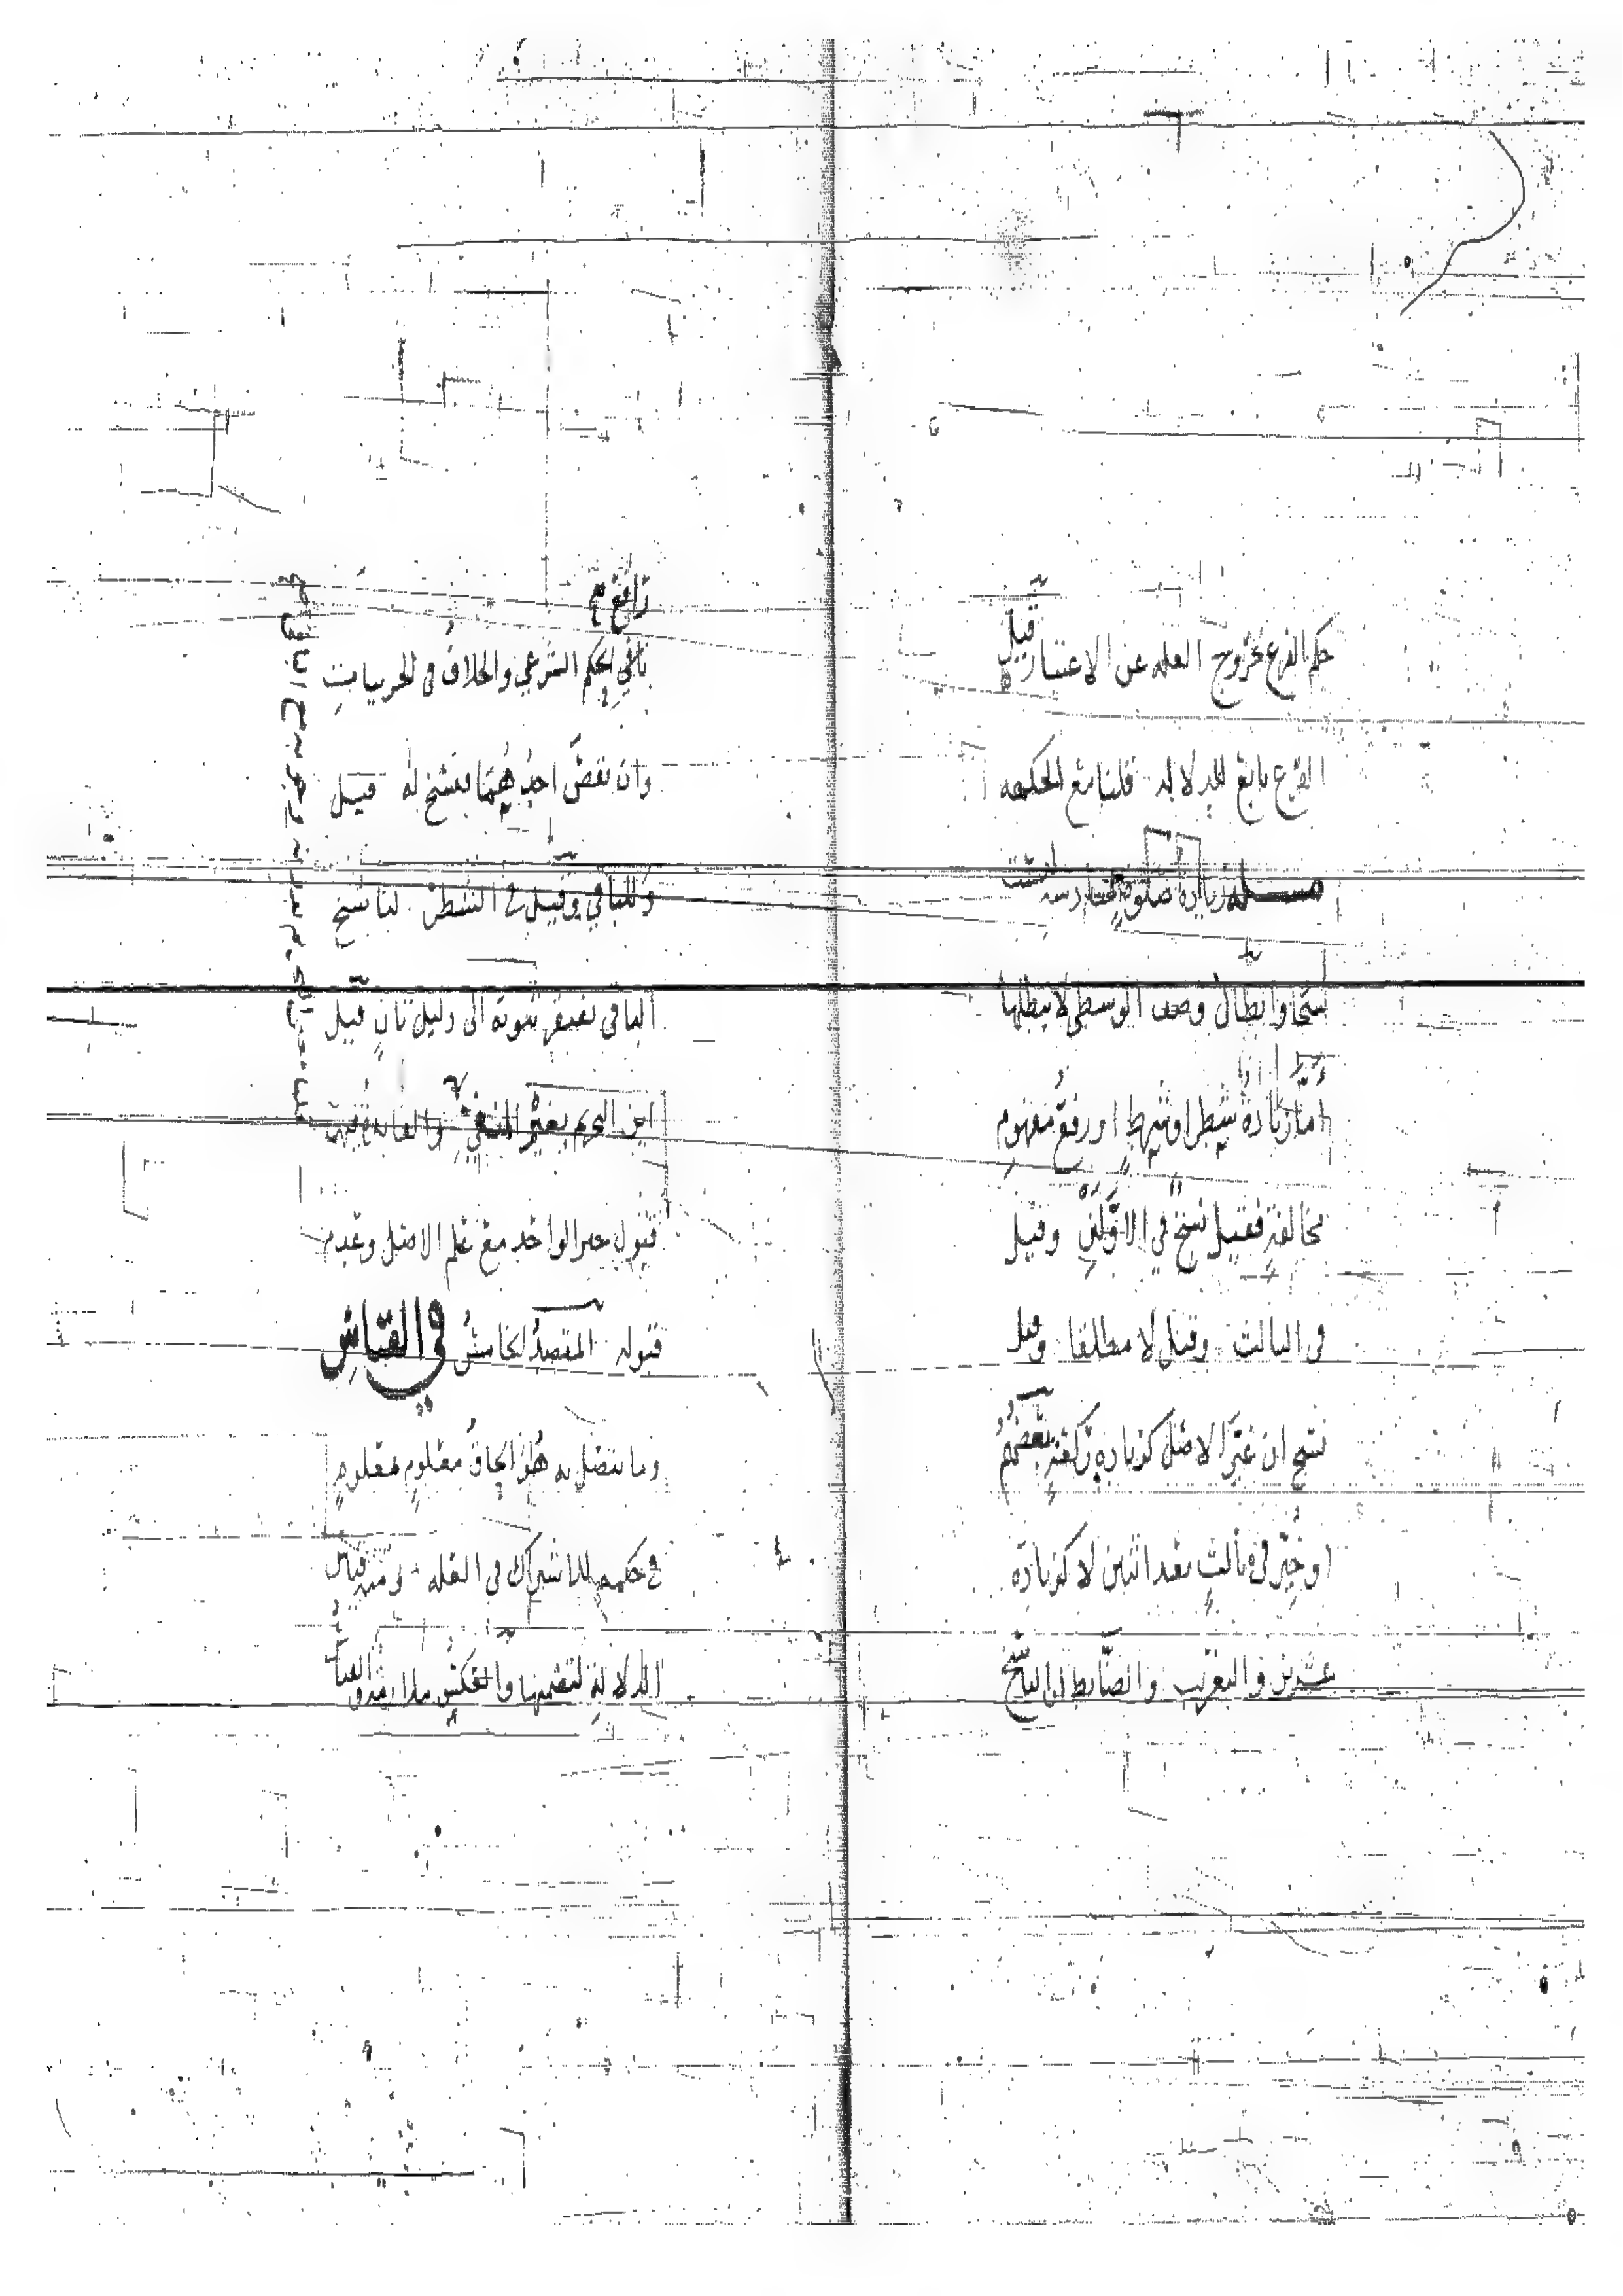 حكم الفرع خروج العله عن الاعتبار قيل
الفرع تابع للدلاله قلنا مع الحكمه
مسله زيادة صلوة سادسه ليست
نسخا وابطال وصف الوسطى لا يبطلها
اما زيادة شطر او شرط او رفع مفهوم
مخالفة فقيل نسخ في الاولين وقيل
في الثالث وقيل لا مطلقا وقيل
نسخ ان غير الاصل كزيادة ركعة بعضهم
او خير في ثالث بعد اثنين لا كزيادة
عشرين والتغريب والضابط ان الناسخ
رافع
نافي الحكم الشرعي والخلاف في الجزييات
وان نقص احدهما فنسخ له قيل
وللباقي وقيل في الشطر لنا نسخ
الباقي يفتقر ثبوته الى دليل ثان قيل
قبول خبر الواحد مع علم الاصل وعدم
قبوله المقصد الخامس في القياس
وما يتصل به هو الحاق معلوم بمعلوم
في حكمه للاشتراك في العله ومنه قياس
الدلالة لتضمنها والعكس